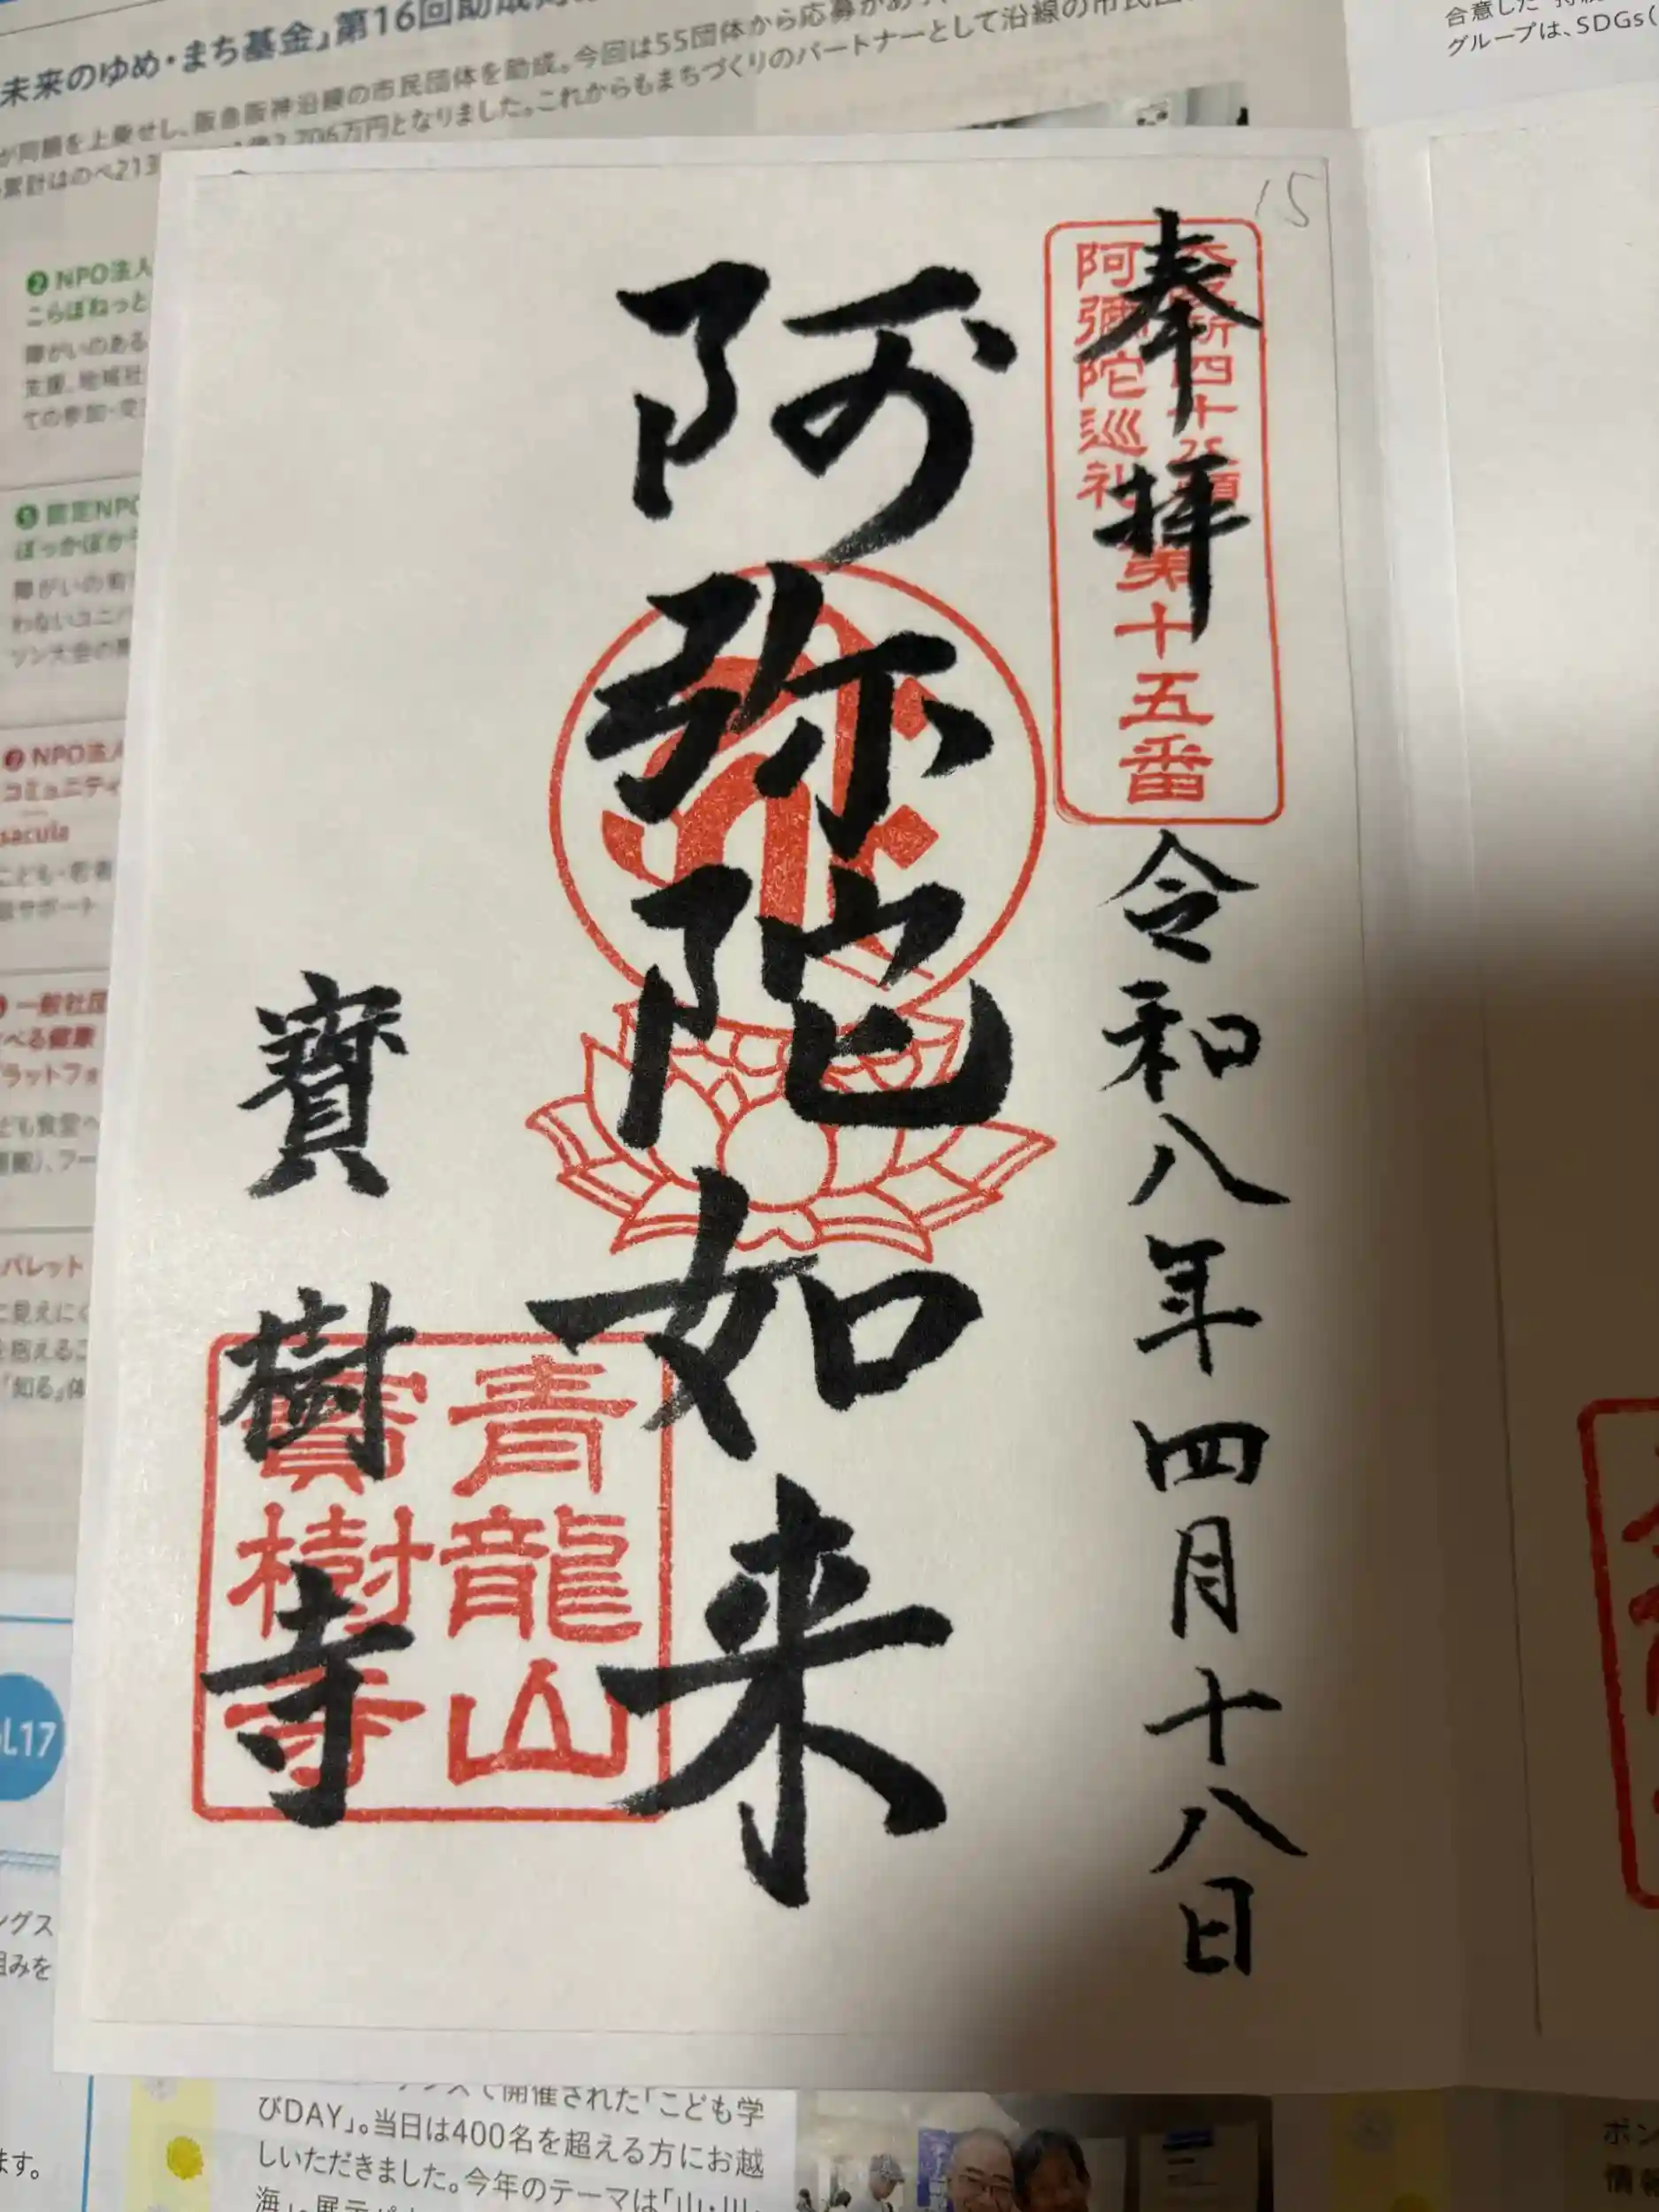 未来のゆめ・まち基金」第16回助成
が同額を上乗せし、阪急阪神沿線の市民団体を助成。今回は55団体から応募があ
累計はのべ213
2,706万円となりました。これからもまちづくりのパートナーとして沿線の市民団
合意した
グループは、SDGs(
15
奉拝
四十八願
阿彌陀巡礼
第十五番
令和八年四月十八日
阿弥陀如来
寶樹寺
青龍山
寶樹寺
❷ NPO法人
こらぼねっと
障がいのある
支援、地域社
ての参加・交
❺ 認定NPO
ぽっかぽか
障がいの有
わないユニバ
ソン大会の
❼ NPO法人
コミュニティ
sacula
こども・若者
サポート
一般社団
べる健康
ラットフォ
ども食堂へ
パレット
に見えにく
を抱えるこ
「知る」体
L17
ングス
組みを
ます。
ンスで開催された「こども学
びDAY」。当日は400名を超える方にお越
しいただきました。今年のテーマは「山・川・
海」。展示パ
ボン
情報